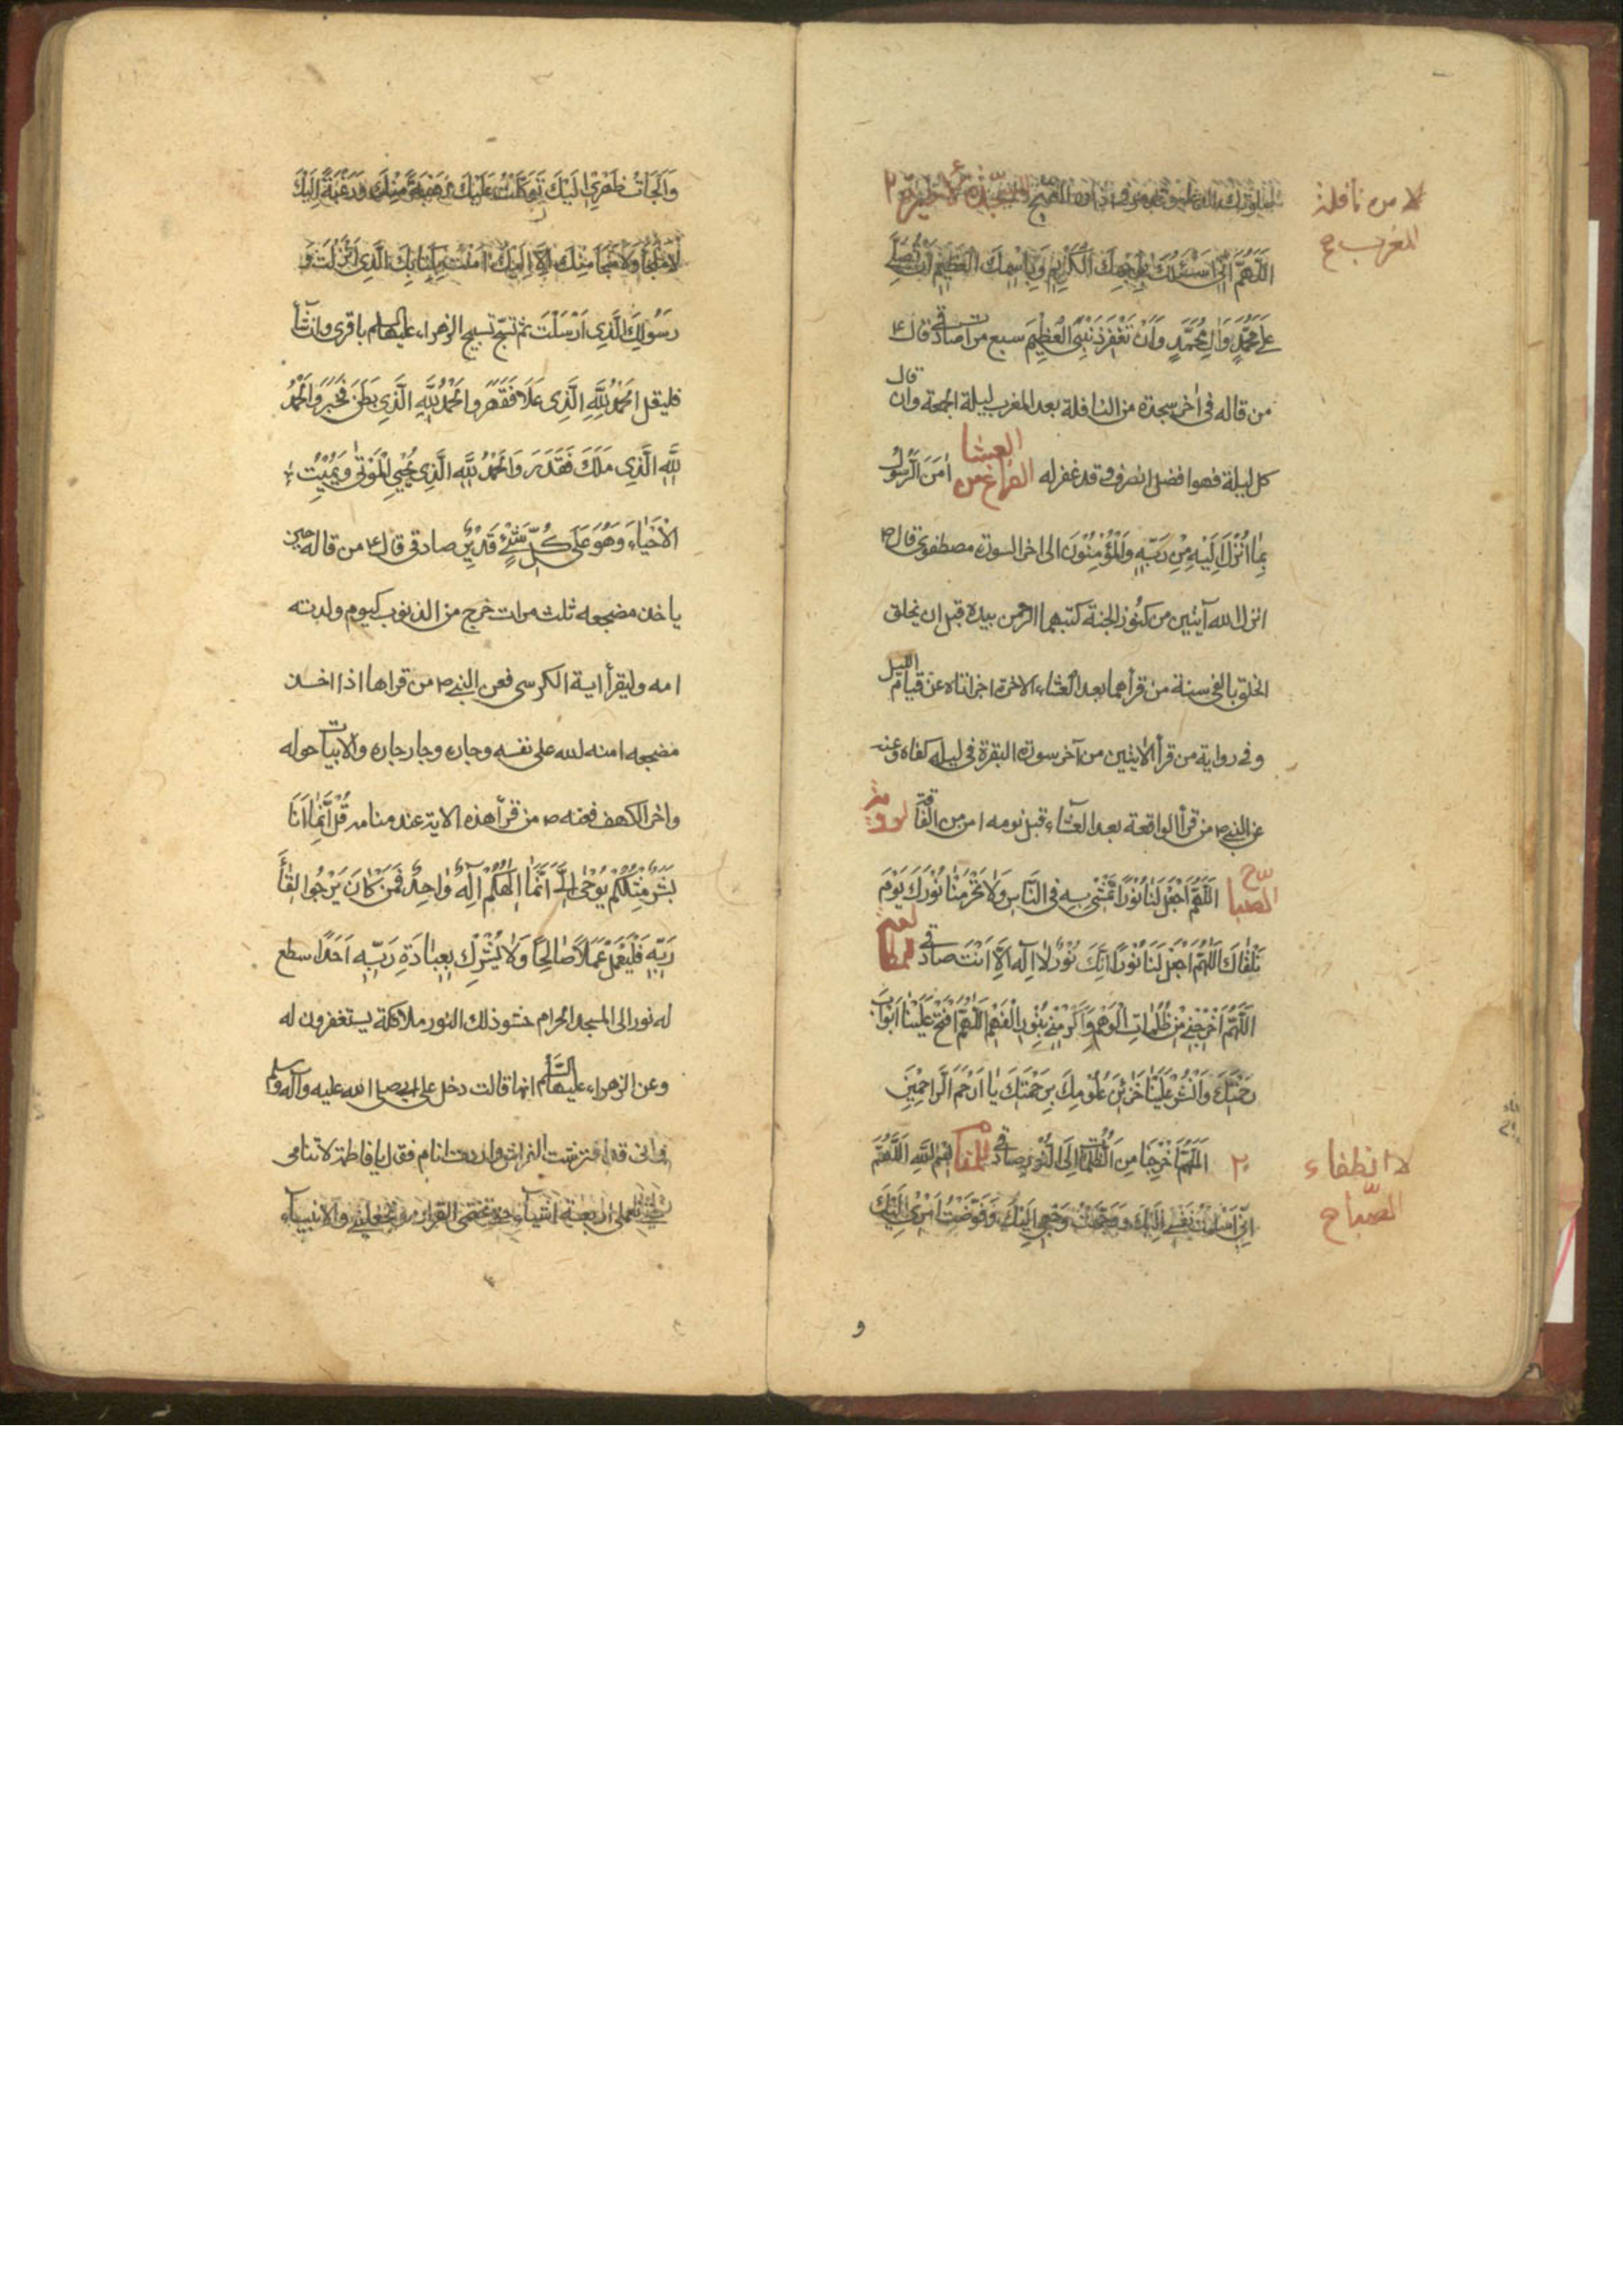 لا من نافلة
المغرب ح
السجدة الاخيرة ٢
اَللّٰهُمَّ اِنّی اَسْئَلُكَ بِوَجْهِكَ الْكَرِیمِ وَبِاسْمِكَ الْعَظِیمِ اَنْ تُصَلِّیَ
عَلیٰ مُحَمَّدٍ وَاٰلِ مُحَمَّدٍ وَاَنْ تَغْفِرَ ذَنْبِیَ الْعَظِیمَ سبع مرات صادقی قال ع
من قاله فی اٰخر سجدة من النافلة بعد المغرب لیلة الجمعة وان قال
كل لیلة فهو افضل انصرف و قد غفر له الفراغ من العشا اٰمَنَ الرَّسُولُ
بِمٰا اُنْزِلَ اِلَیْهِ مِنْ رَبِّهِ وَالْمُؤْمِنُوْنَ الی اخر السورة مصطفوی قال ص
انزل الله آیتین من كنوز الجنة كتبهما الرحمن بیده قبل ان یخلق
الخلق بالفی سنة من قرأهما بعد العشاء الاخرة اجزأتاه عن قیام اللیل
و فی روایة من قرأ الایتین من آخر سورة البقرة فی لیلة كفاه وعنه
عن النبی ص من قرأ الواقعة بعد العشاء قبل نومه امن من الفاقة لرؤیة
المصباح اَللّٰهُمَّ اجْعَلْ لَنٰا نُوْرًا نَمْشی بِهِ فی النّٰاسِ وَلاٰ تَحْرِمْنٰا نُوْرَكَ یَوْمَ
نَلْقٰاكَ اَللّٰهُمَّ اجْعَلْ لَنٰا نُوْرًا اِنَّكَ نُوْرٌ لاٰ اِلٰهَ اِلاّٰ اَنْتَ صادقی
اَللّٰهُمَّ اَخْرِجْنی مِنْ ظُلُمٰاتِ الْوَهْمِ وَاَكْرِمْنی بِنُوْرِ الْفَهْمِ اَللّٰهُمَّ افْتَحْ عَلَیْنٰا اَبْوٰابَ
رَحْمَتِكَ وَانْشُرْ عَلَیْنٰا خَزٰائِنَ عُلُوْمِكَ بِرَحْمَتِكَ یٰا اَرْحَمَ الرّٰاحِمِیْنَ
لا انطفاء
المصباح
٢ اَللّٰهُمَّ اَخْرِجْنٰا مِنَ الظُّلُمٰاتِ اِلَی النُّوْرِ صادقی للمنام بِسْمِ اللّٰهِ اَللّٰهُمَّ
اِنّی اَسْلَمْتُ نَفْسی اِلَیْكَ وَوَجَّهْتُ وَجْهی اِلَیْكَ وَفَوَّضْتُ اَمْرِیْ اِلَیْكَ
و
وَاَلْجَأْتُ ظَهْرِیْ اِلَیْكَ تَوَكَّلْتُ عَلَیْكَ رَهْبَةً مِنْكَ وَرَغْبَةً اِلَیْكَ
لاٰ مَلْجَأَ وَلاٰ مَنْجٰا مِنْكَ اِلاّٰ اِلَیْكَ اٰمَنْتُ بِكِتٰابِكَ الَّذِی اَنْزَلْتَ وَ
رَسُوْلِكَ الَّذِی اَرْسَلْتَ ثم تسبّح تسبیح الزهراء علیها السلم باقری وان شآء
فلیقل اَلْحَمْدُ لِلّٰهِ الَّذِی عَلاَ فَقَهَرَ وَالْحَمْدُ لِلّٰهِ الَّذِی بَطَنَ فَخَبَرَ وَالْحَمْدُ
لِلّٰهِ الَّذِی مَلَكَ فَقَدَرَ وَالْحَمْدُ لِلّٰهِ الَّذِی یُحْیِی الْمَوْتٰی وَیُمِیْتُ
الْاَحْیٰاءَ وَهُوَ عَلٰی كُلِّ شَیْءٍ قَدِیْرٌ صادقی قال ع من قاله حین
یاخذ مضجعه ثلث مرات خرج من الذنوب كیوم ولدته
امه ولیقرأ ایة الكرسی فعن النبی ص من قراها اذا اخذ
مضجعه امنه الله علی نفسه وجاره وجار جاره والابیات حوله
واخر الكهف فعنه ص من قرأ هذه الایة عند منامه قُلْ اِنَّمٰا اَنَا
بَشَرٌ مِثْلُكُمْ یُوْحٰی اِلَیَّ اَنَّمٰا اِلٰهُكُمْ اِلٰهٌ وٰاحِدٌ فَمَنْ كٰانَ یَرْجُوا لِقٰآءَ
رَبِّهِ فَلْیَعْمَلْ عَمَلاً صٰالِحًا وَلاٰ یُشْرِكْ بِعِبٰادَةِ رَبِّهِ اَحَدًا سطع
له نور الی المسجد الحرام حشو ذلك النور ملائكة یستغفرون له
وعن الزهراء علیها السّلم انها قالت دخل علی ابی صلی الله علیه وآله وسلم
وانی قد افترشت الفراش واردت انام فقال یا فاطمة لا تنامی
حتی تعملی اربعة اشیآء حتی تختمی القرآن و تجعلی والانبیآء